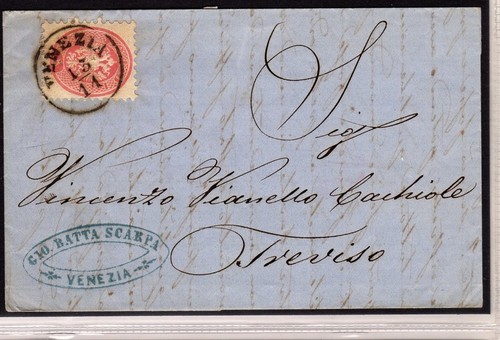 VENEZIA
13
11
Sig.
Vincenzo Vianello Cachiole
Treviso
GIO. BATTA SCARPA
VENEZIA